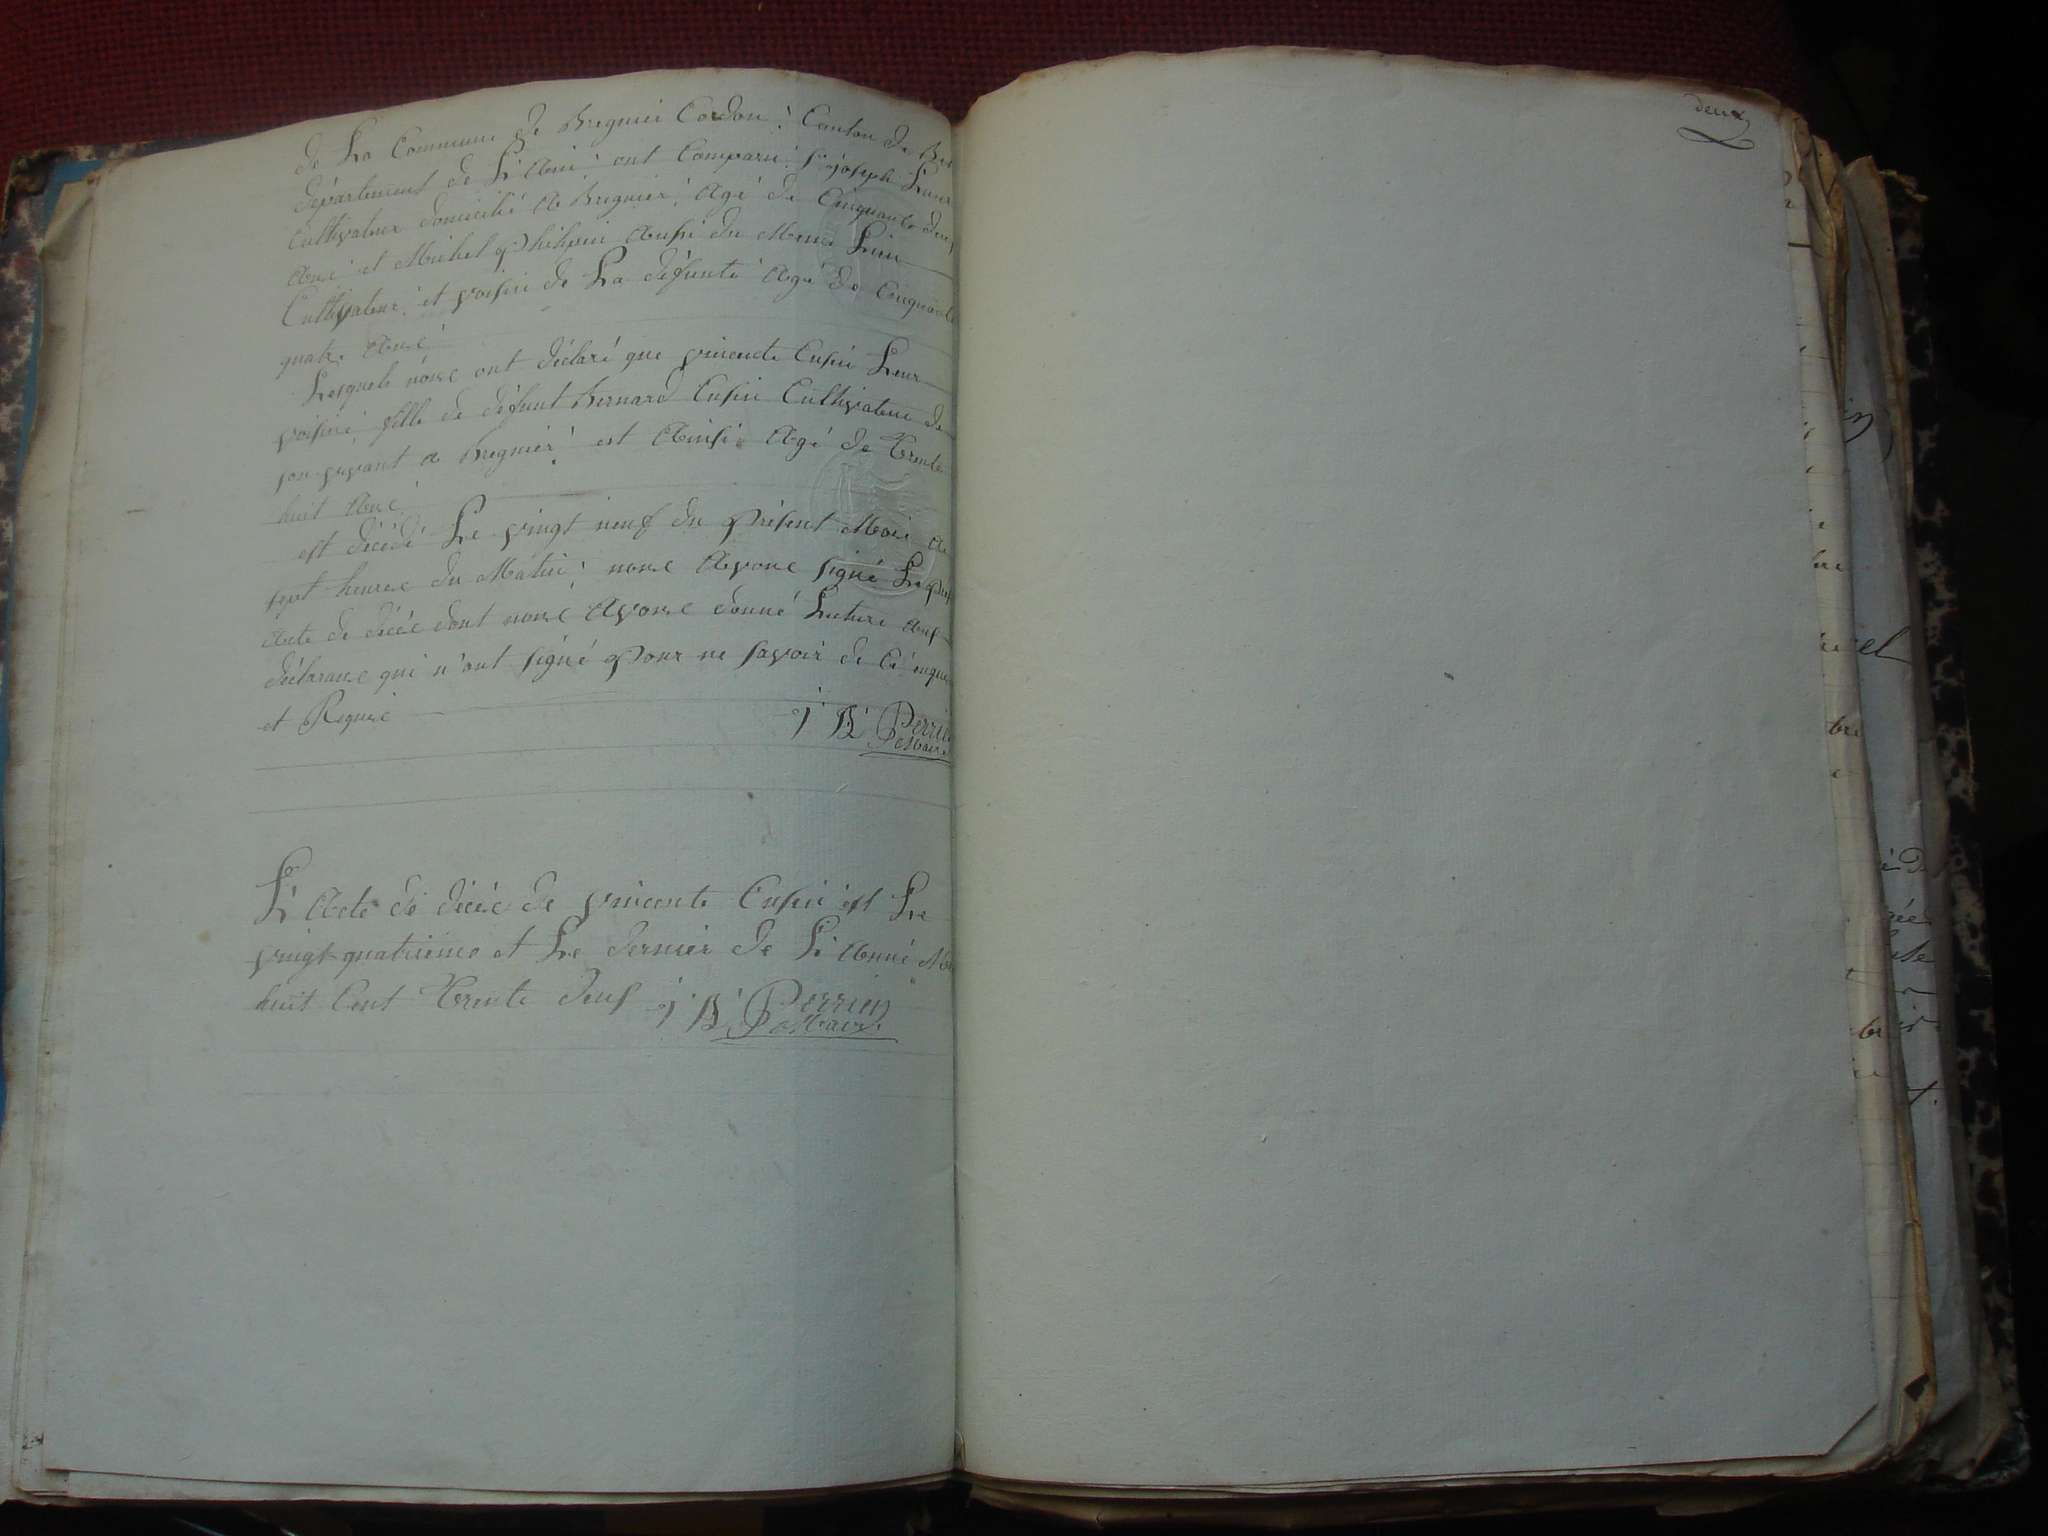 de La Commune de Bregnier Cordon: Canton de
département de L'Ain: ont Comparu: Sr joseph
Cultivateur domicilié A Bregnier: Agé de Cinquante deux
Ans: et Michel philipin Ausi du Meme Lieu
Cultivateur: et voisin de La défunte Agé de Cinquante
quatre Ans
Lesquels nous ont déclaré que vincente Cusin Leur
voisine, fille de défunt bernard Cusin Cultivateur de
son vivant a bregnier: est Ainsi Agé de Trente
huit Ans
est décédé Le vingt neuf du présent Mois A
sept heures du Matin: nous Avons signé Le
Acte de décès dont nous Avons donné Lecture Aux
déclarans qui n'ont signé pour ne savoir de Ce enquis
et Requis
j B Perrin
Maire
L'Acte de décès de vincente Cusin est Le
vingt-quatrieme et Le dernier de L'Anné
huit Cent Trente deux j B Perrin
Maire
deux